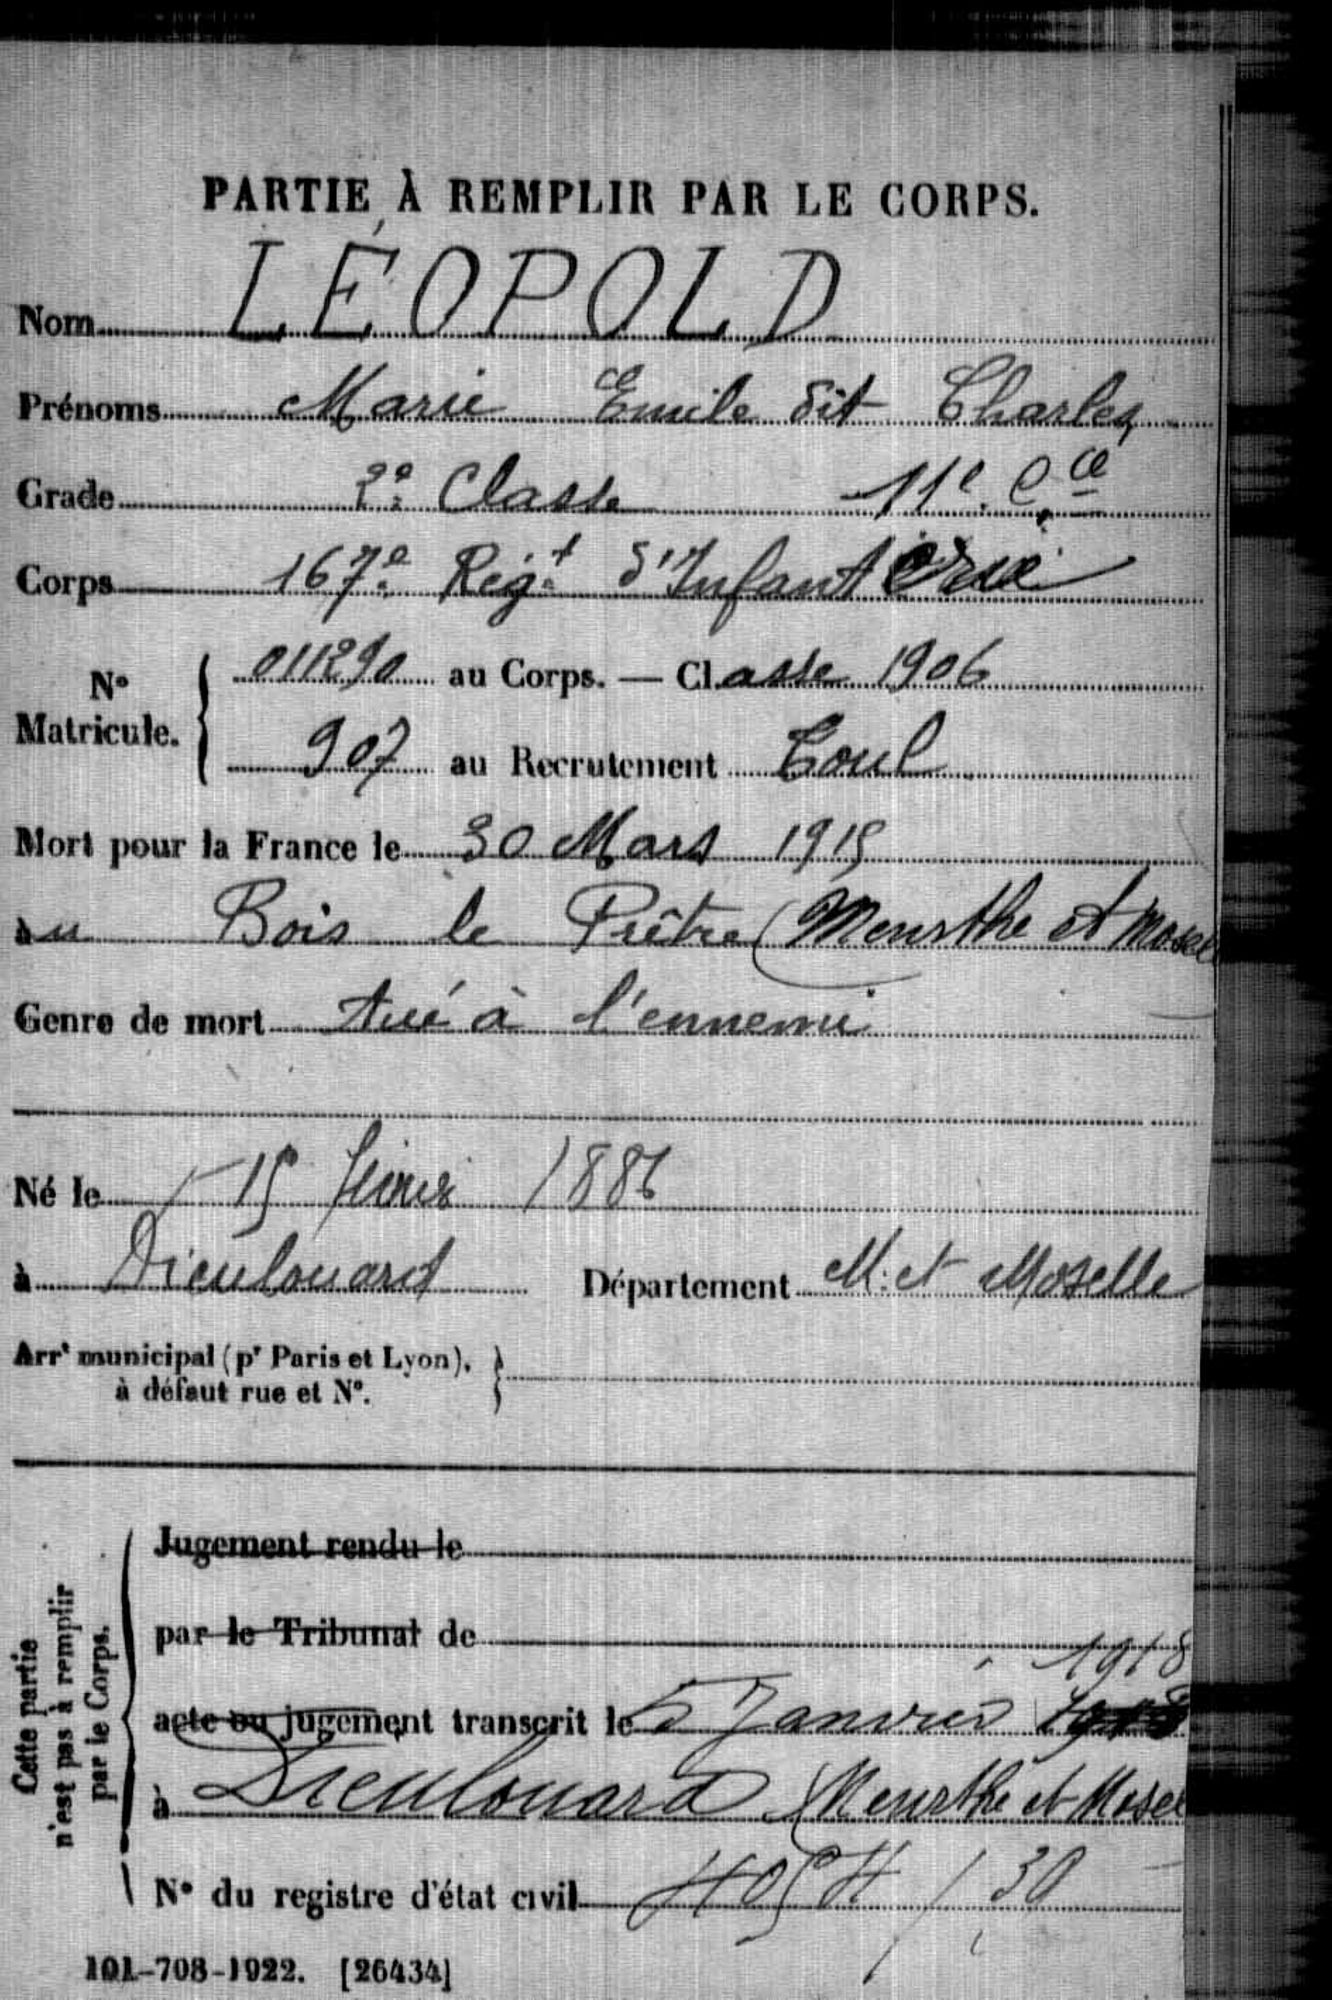 PARTIE À REMPLIR PAR LE CORPS.
Nom LÉOPOLD
Prénoms Marie Emile dit Charles
Grade 2e Classe 11e Cie
Corps 167e Régt d'Infanterie
No Matricule. 011290 au Corps. — Cl.asse 1906
907 au Recrutement Toul
Mort pour la France le 30 Mars 1915
au Bois le Prêtre (Meurthe et Mosel
Genre de mort tué à l'ennemi
Né le 15 février 1886
à Dieulouard Département M. et Moselle
Arrt municipal (pr Paris et Lyon),
à défaut rue et No.
Cette partie n'est pas à remplir par le Corps.
Jugement rendu le
par le Tribunal de
1918
acte ou jugement transcrit le 5 Janvier
à Dieulouard (Meurthe et Mosel
No du registre d'état civil / 30
101-708-1922. [26434]